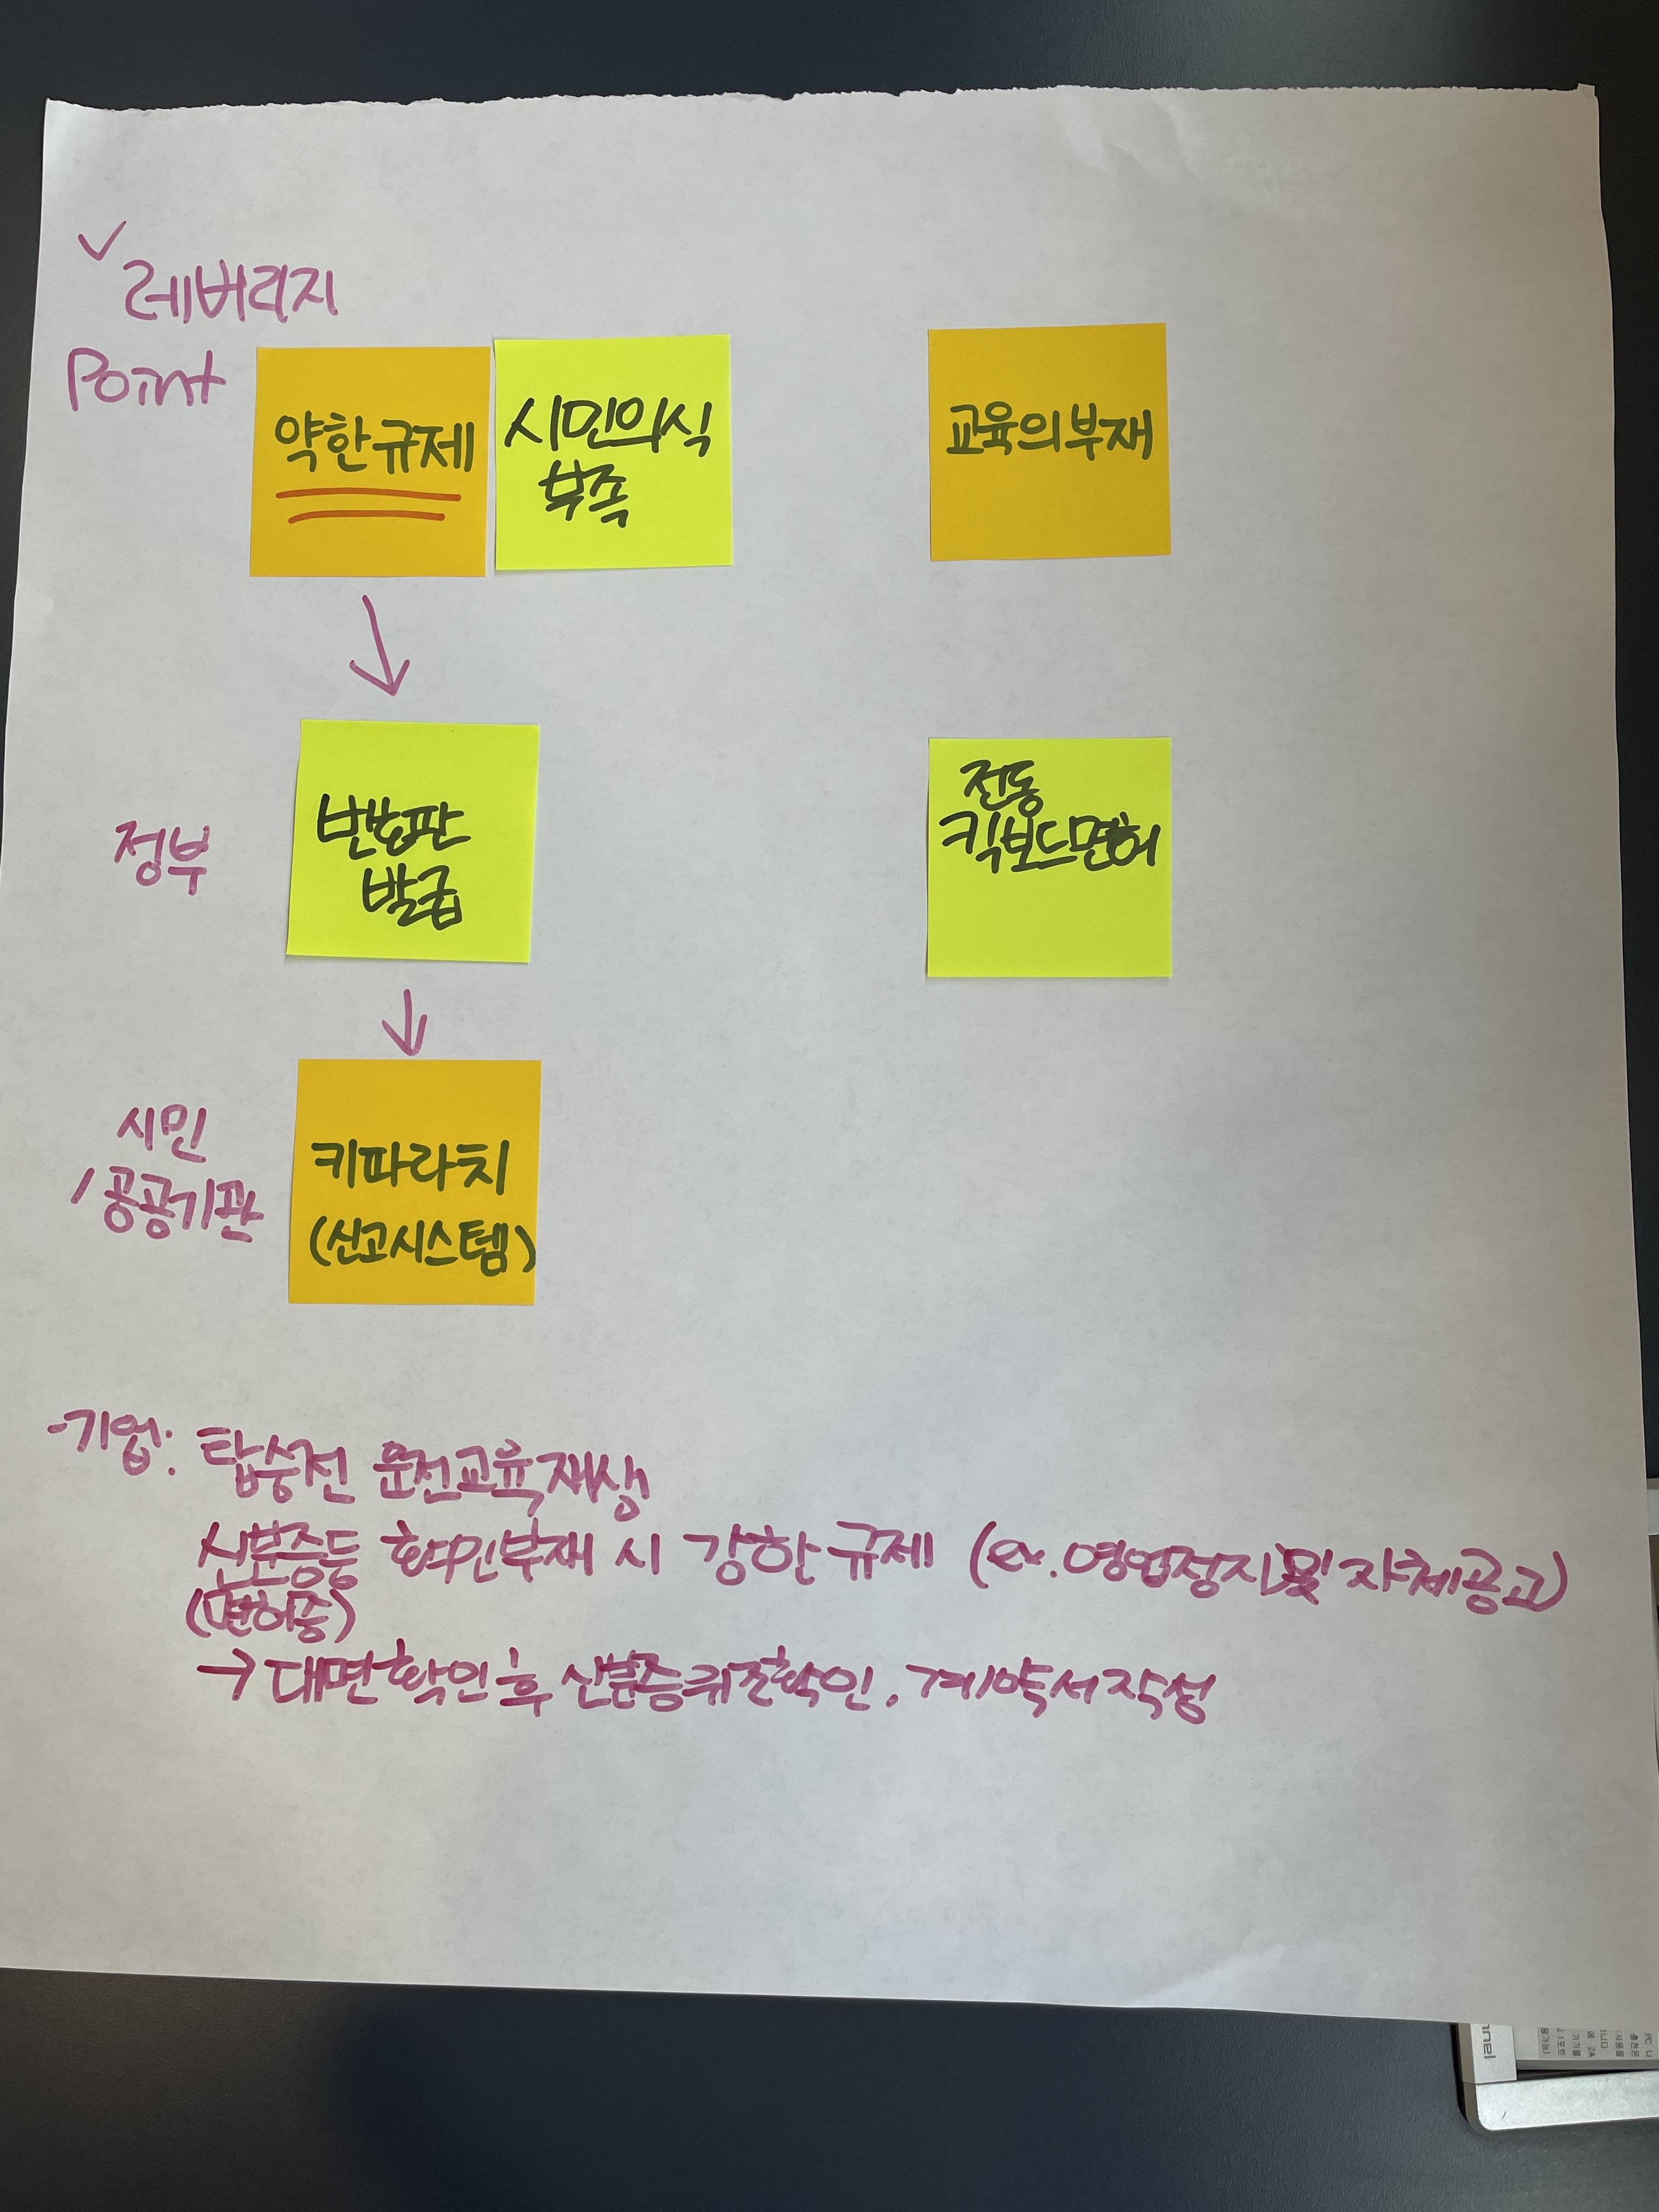 ✓ 레버리지
Point
약한규제
시민의식
부족
교육의부재
정부
번호판
발급
전동
킥보드면허
시민
/공공기관
키파라치
(신고시스템)
-기업: 탑승전 운전교육재생
신분증등 확인부재 시 강한규제 (ex.영업정지및 자체공고)
(면허증)
→대면확인후 신분증위조확인, 계약서작성
nnel